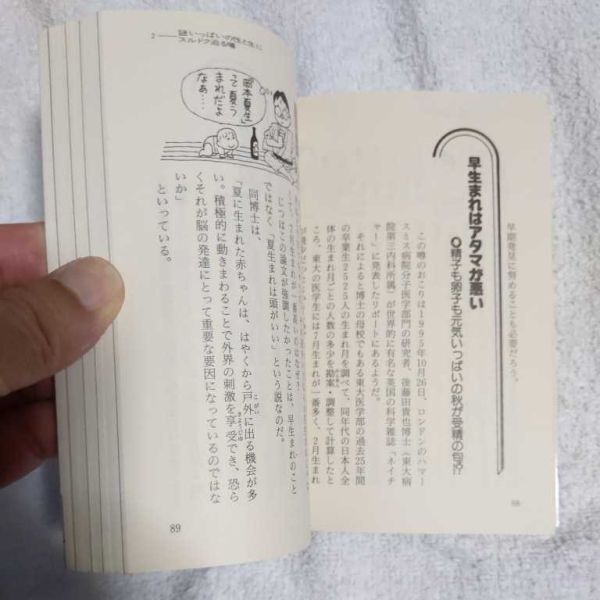 早期発見に努めることも必要だろう。
早生まれはアタマが悪い
◎精子も卵子も元気いっぱいの秋が受精の旬!?
この噂のおこりは1995年10月26日、ロンドンのハマー
スミス病院分子医学部門の研究者、後藤田貴也博士（東大病
院第三内科所属）が世界的に有名な英国の科学雑誌「ネイチ
ャー」に発表したリポートにあるようだ。
それによると博士の母校でもある東大医学部の過去25年間
の卒業生2525人の生まれ月を調べて、同年代の日本人全
体の生まれ月ごとの人数の多少を勘案・調整して計算したと
ころ、東大の医学生には7月生まれが一番多く、2月生まれ
88
2──謎いっぱいの性と生に
スルドク迫る噂
「岡本夏生」
って夏う
まれだよ
なぁ…
じつはこの論文が強調したかったことは、早生まれのこと
ではなく「夏生まれは頭がいい」という説なのだ。
同博士は、
「夏に生まれた赤ちゃんは、はやくから戸外に出る機会が多
い。積極的に動きまわることで外界の刺激を享受でき、恐ら
くそれが脳の発達にとって重要な要因になっているのではな
いか」
といっている。
89